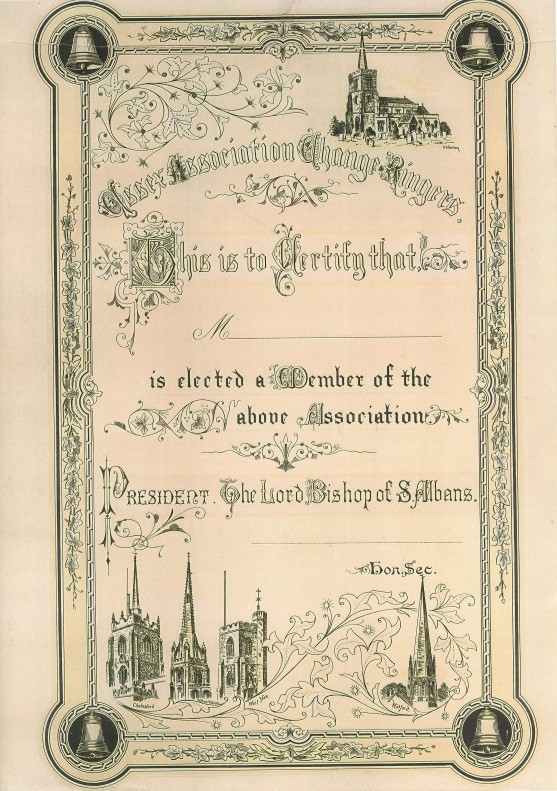 Essex Association Change Ringers,
This is to Certify that,
M
is elected a Member of the
above Association
PRESIDENT. The Lord Bishop of S. Albans.
Hon. Sec.
Chelmsford
West Ham
Writtle